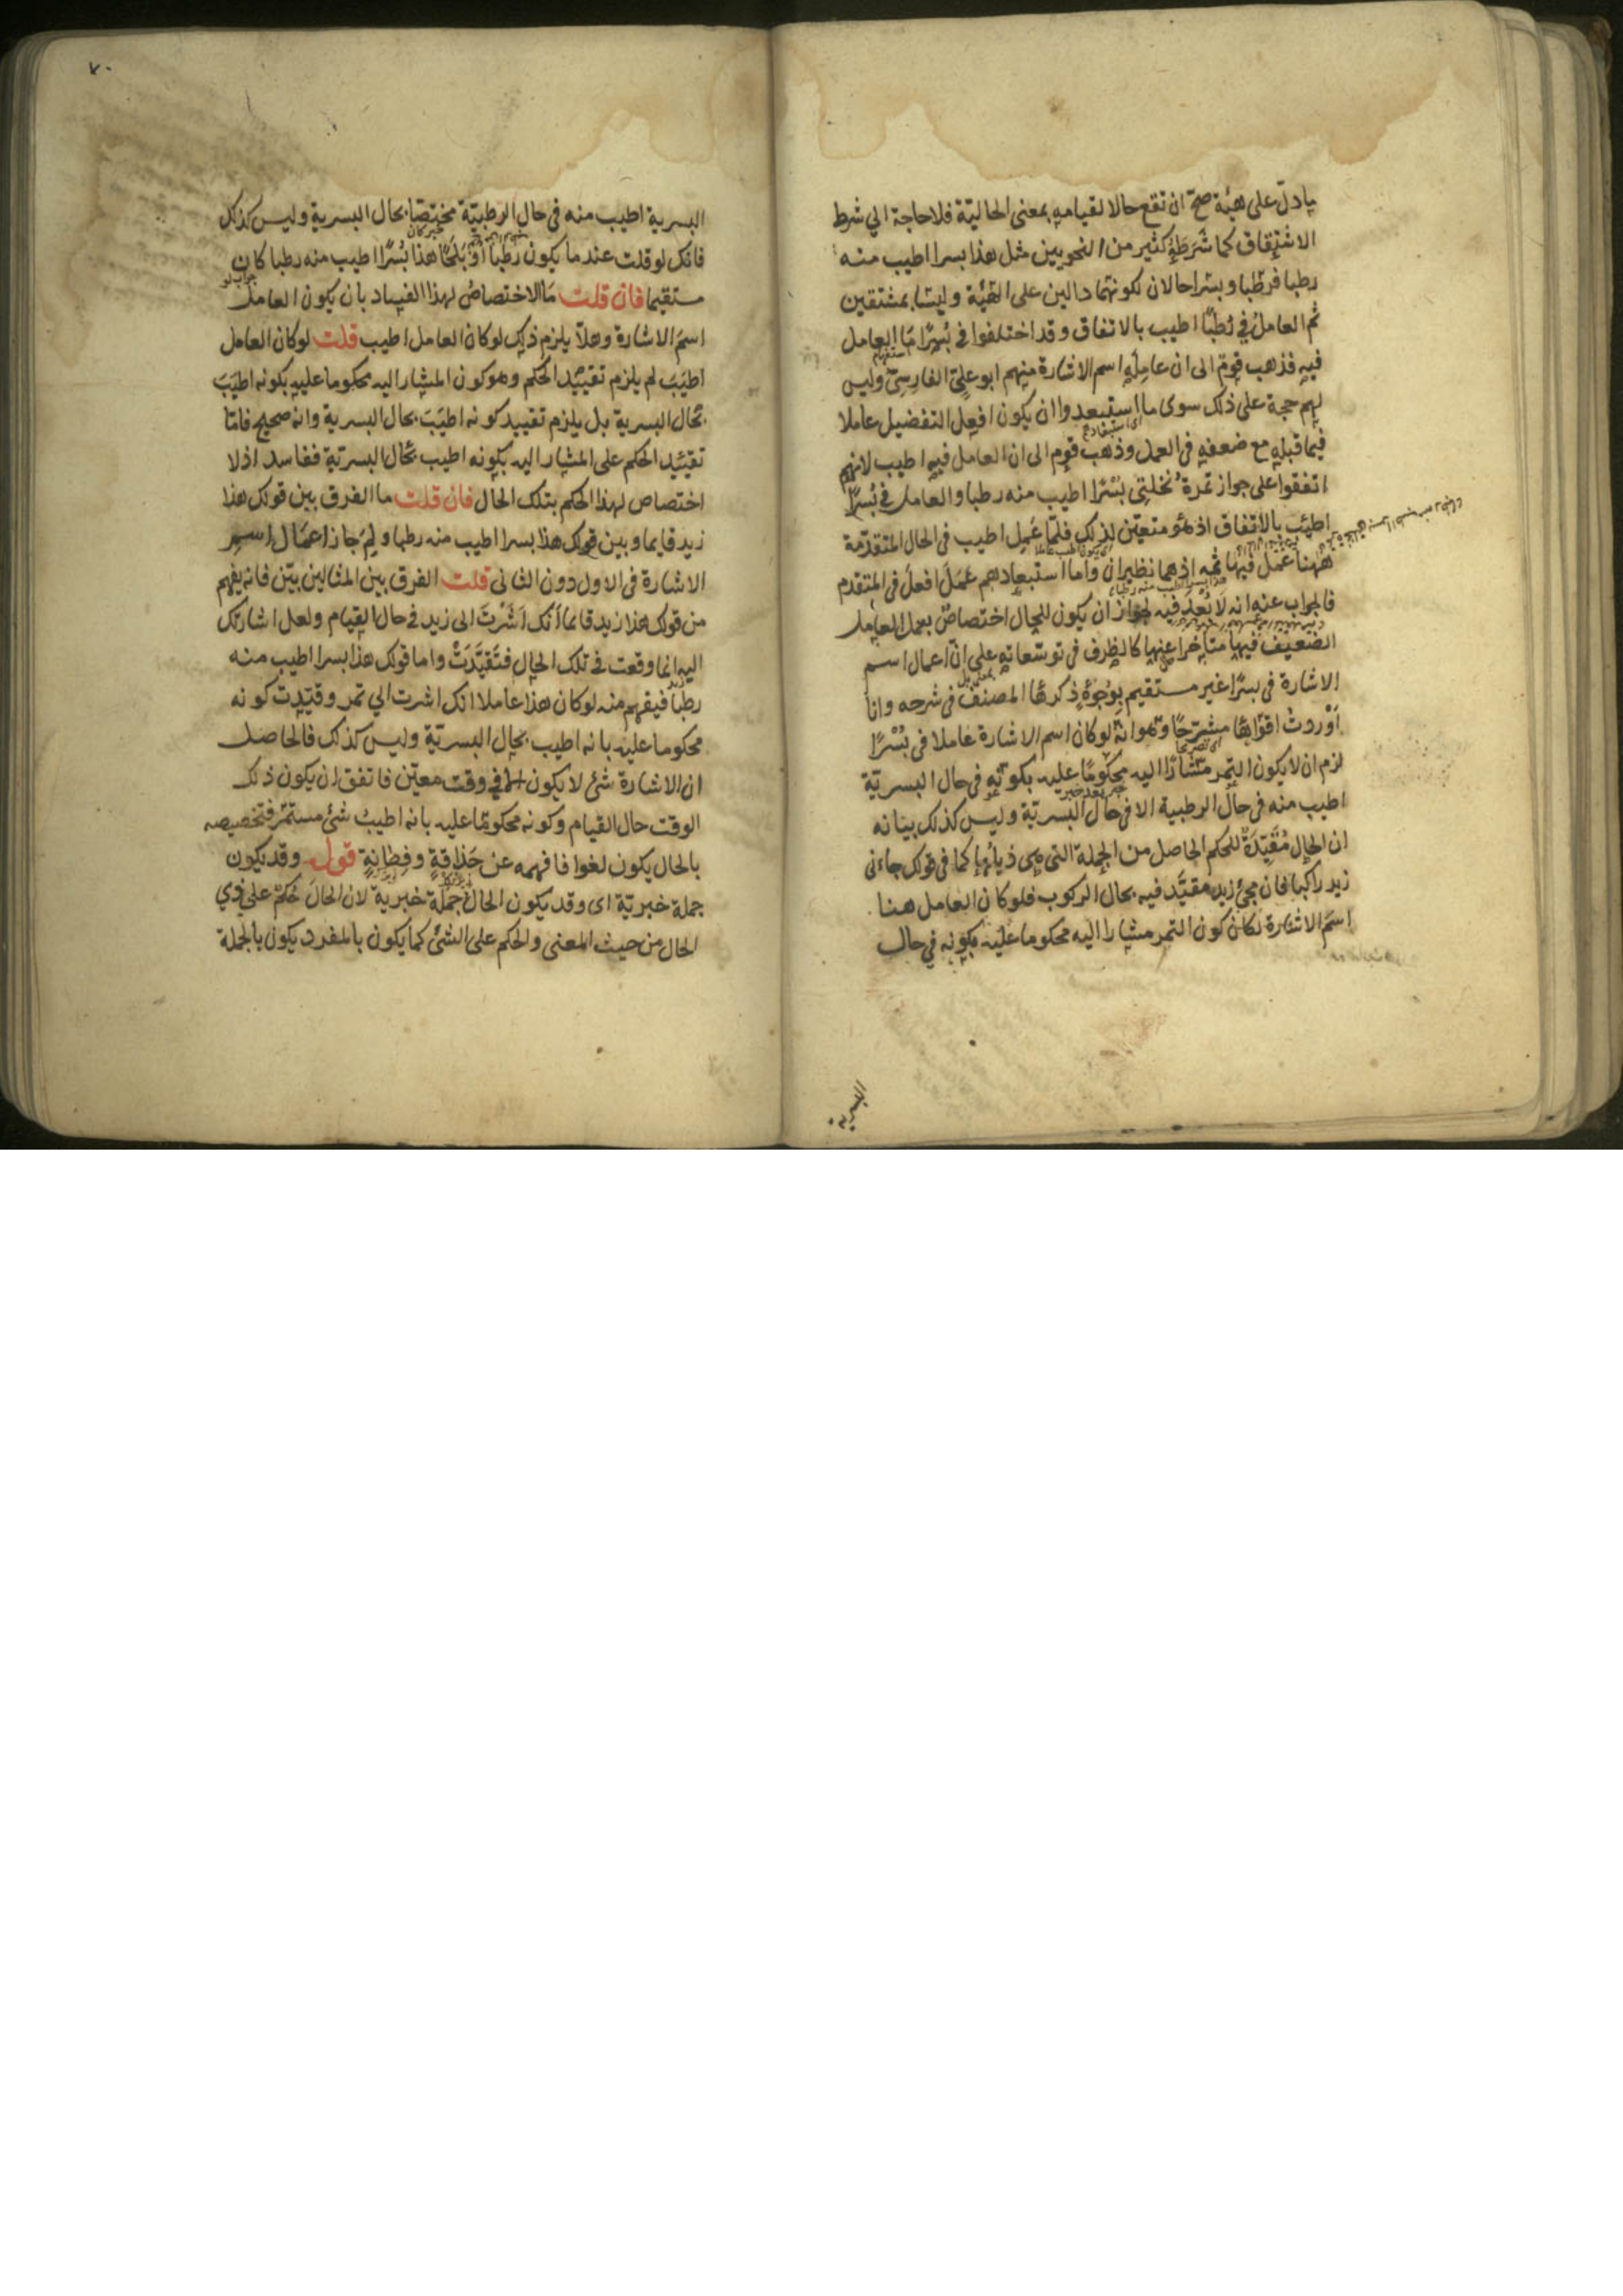 يادل على هيئة صح ان تقع حالا لقيامه بمعنى الحالية فلا حاجة الي شرط
الاشتقاق كما شرطه كثير من النحويين مثل هذا بسرا اطيب منه
رطبا فرطبا وبسرا حالان لكونهما دالين على الهيئة وليسا بمشتقين
ثم العامل في رطبا اطيب بالاتفاق وقد اختلفوا في بسرا ما العامل
فيه فذهب قوم الى ان عامله اسم الاشارة منهم ابو علي الفارسي وليس
لهم حجة على ذلك سوى ما استبعدوا ان يكون افعل التفضيل عاملا
فيما قبله مع ضعفه في العمل وذهب قوم الى ان العامل فيه اطيب لانهم
اتفقوا على جواز تمرة نخلتي بسرا اطيب منه رطبا والعامل في بسرا
اطيب بالاتفاق اذ هو متعين لذلك فلما عمل اطيب في الحال المتقدمة
ههنا عمل فيها ثمه اذ هما نظيران واما استبعادهم عمل افعل في المتقدم
فالجواب عنه انه لا بعد فيه لجواز ان يكون للحال اختصاص بعمل العامل
الضعيف فيها متاخرا عنها كالظرف في توسعاته على ان اعمال اسم
الاشارة في بسرا غير مستقيم بوجوه ذكرها المصنف في شرحه وانا
اوردت اقواها مشرحا وهو انه لو كان اسم الاشارة عاملا في بسرا
لزم ان لا يكون التمر مشارا اليه محكوما عليه بكونه في حال البسرية
اطيب منه في حال الرطبية الا في حال البسرية وليس كذلك بيانه
ان الحال مقيدة للحكم الحاصل من الجملة التي هي ذيلها كما في قولك جاءني
زيد راكبا فان مجئ زيد مقيد فيه بحال الركوب فلو كان العامل هنا
اسم الاشارة لكان كون التمر مشارا اليه محكوما عليه بكونه في حال
البسرية
٧٠
البسرية اطيب منه في حال الرطبية مختصا بحال البسرية وليس كذلك
فانك لو قلت عندما يكون رطبا او بلحا هذا بسرا اطيب منه رطبا كان
مستقيما فان قلت ما الاختصاص لهذا الفساد بان يكون العامل
اسم الاشارة وهلا يلزم ذلك لو كان العامل اطيب قلت لو كان العامل
اطيب لم يلزم تقييد الحكم وهو كون المشار اليه محكوما عليه بكونه اطيب
بحال البسرية بل يلزم تقييد كونه اطيب بحال البسرية وانه صحيح فاما
تقييد الحكم على المشار اليه بكونه اطيب بحال البسرية ففاسد اذ لا
اختصاص لهذا الحكم بتلك الحال فان قلت ما الفرق بين قولك هذا
زيد قايما وبين قولك هذا بسرا اطيب منه رطبا ولم جاز اعمال اسم
الاشارة في الاول دون الثاني قلت الفرق بين المثالين بين فانه يفهم
من قولك هذا زيد قايما انك اشرت الى زيد في حال القيام ولعل اشارتك
اليه انما وقعت في تلك الحال فتقيدت واما قولك هذا بسرا اطيب منه
رطبا فيفهم منه لو كان هذا عاملا انك اشرت الي تمر وقيدت كونه
محكوما عليه بانه اطيب بحال البسرية وليس كذلك فالحاصل
ان الاشارة شئ لا يكون الا في وقت معين فاتفق ان يكون ذلك
الوقت حال القيام وكونه محكوما عليه بانه اطيب شئ مستمر فتخصيصه
بالحال يكون لغوا فافهمه عن حذاقة وفطانة قوله وقد يكون
جملة خبرية اى وقد يكون الحال جملة خبرية لان الحال حكم على ذي
الحال من حيث المعنى والحكم على الشئ كما يكون بالمفرد يكون بالجملة